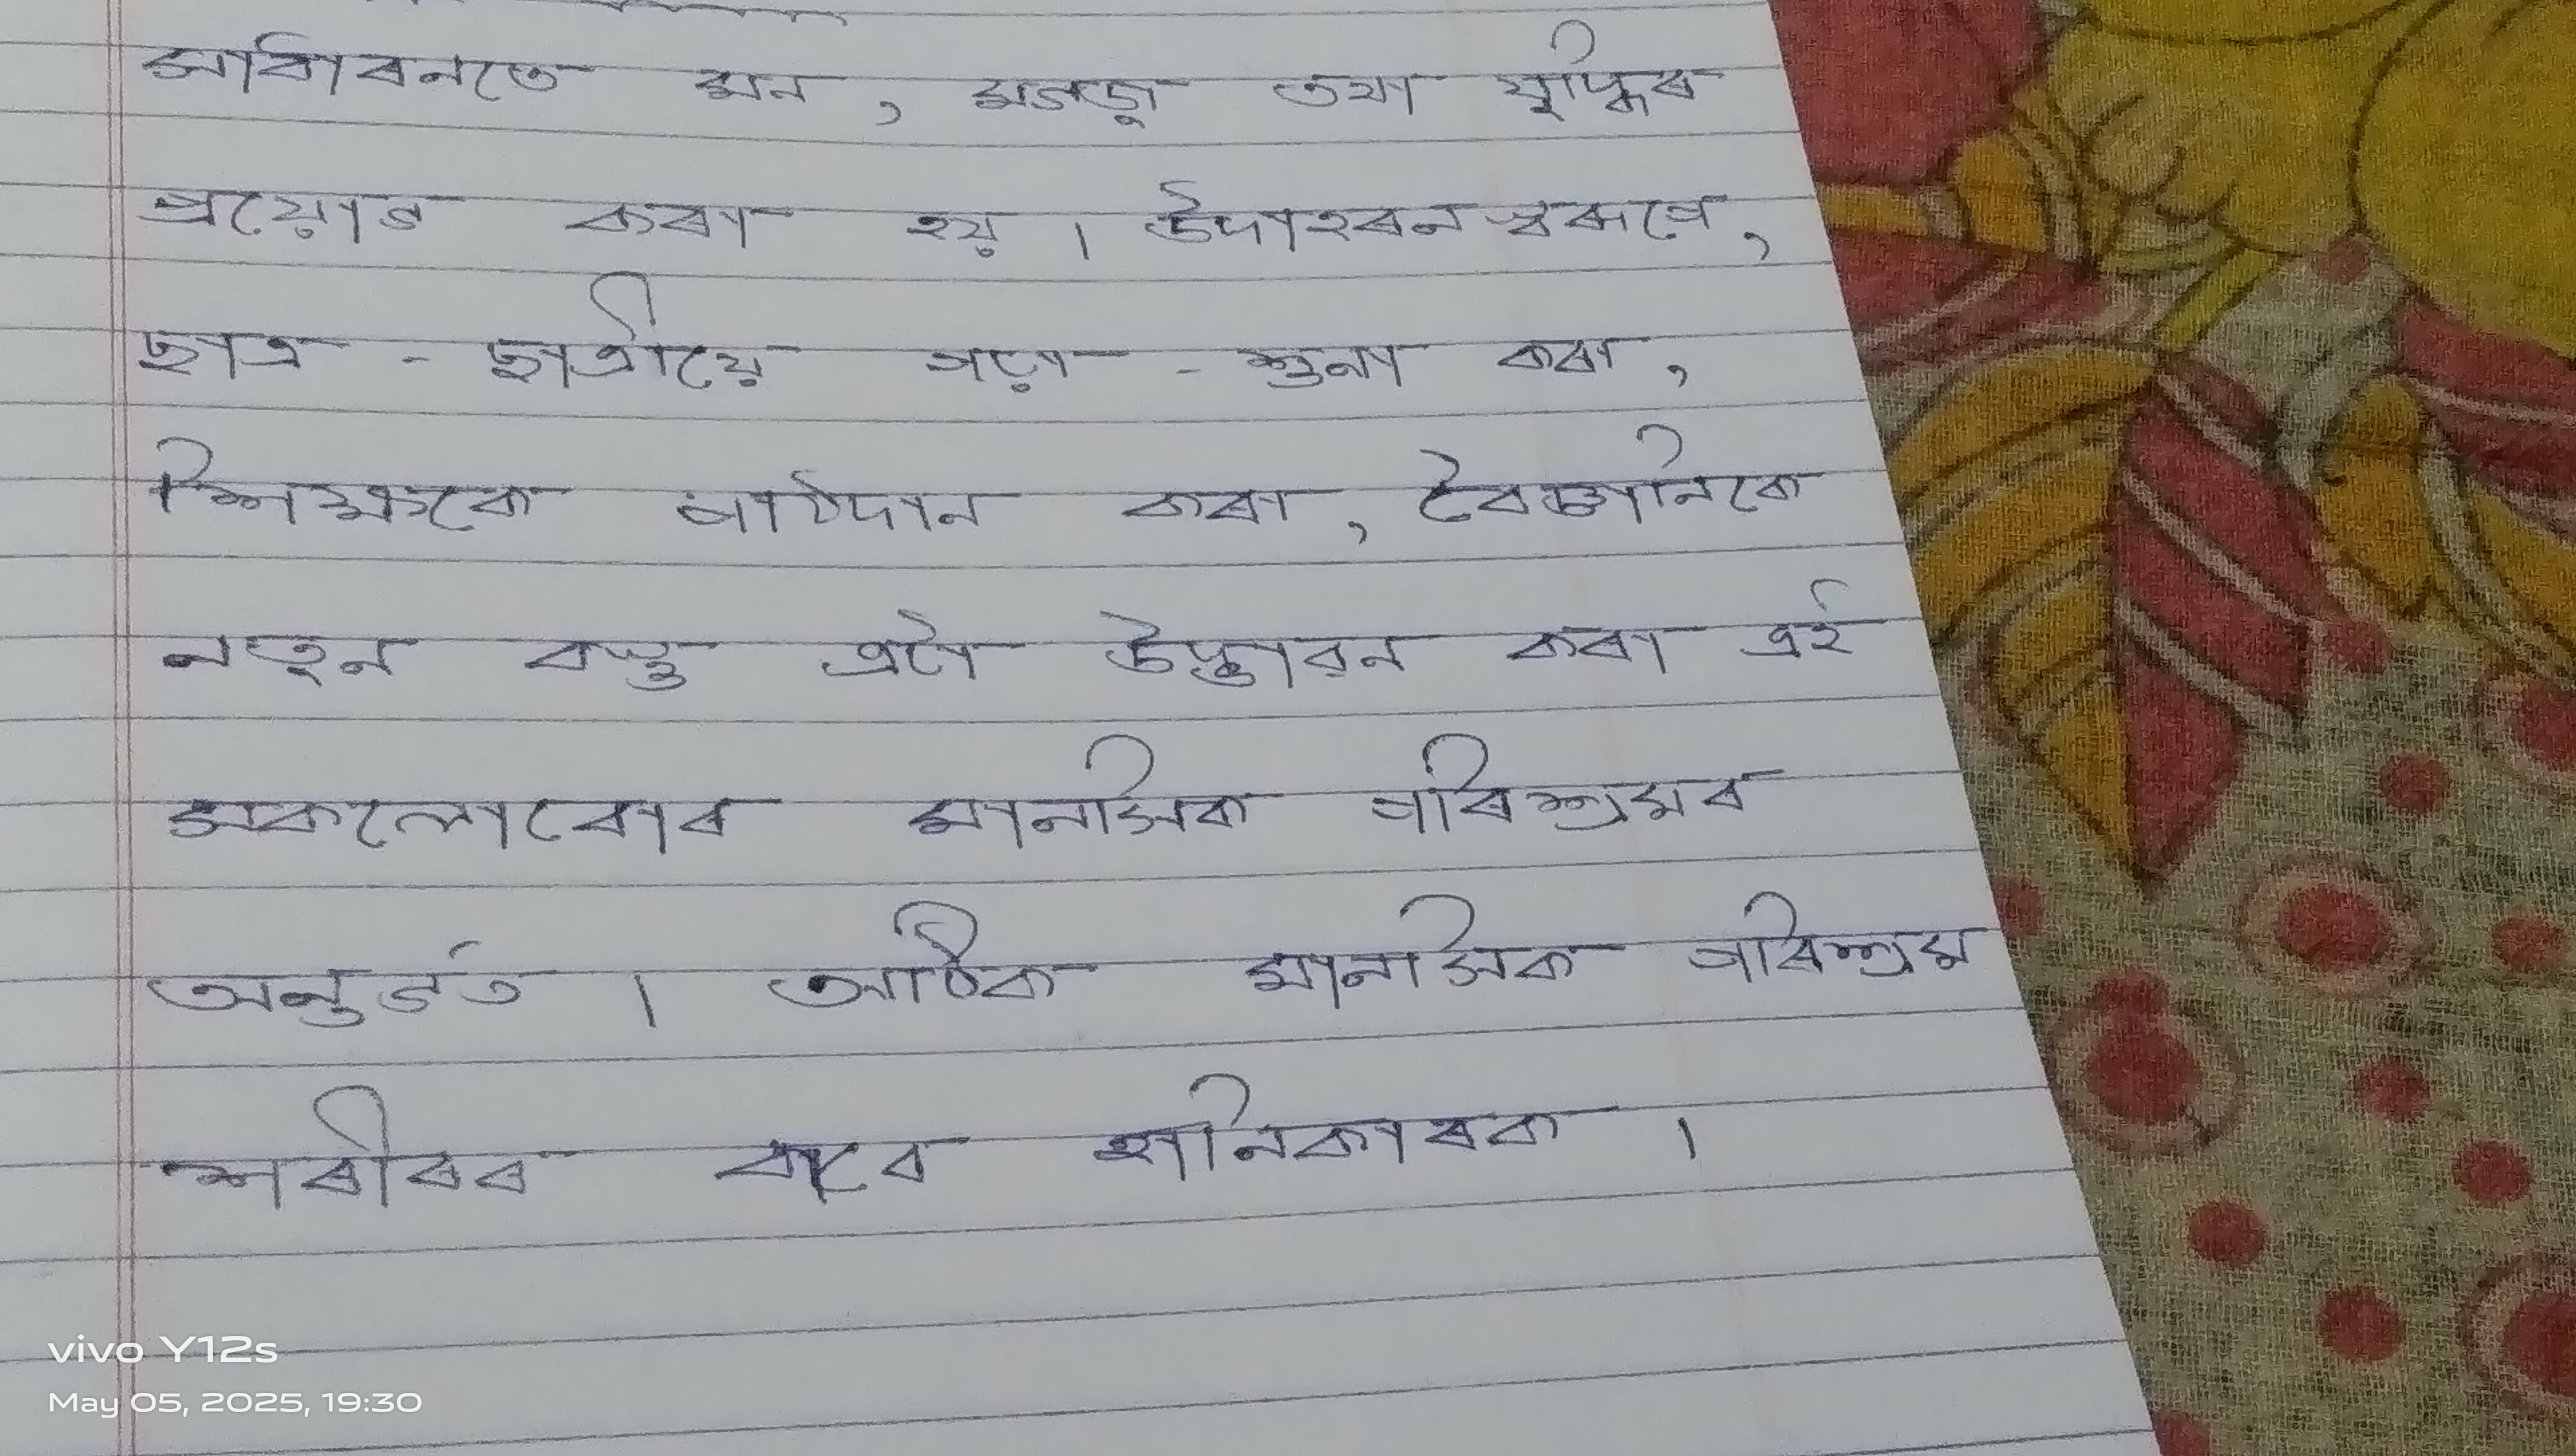 সাধাৰনতে মন, মগজু তথা যুক্তিৰ
প্ৰয়োগ কৰা হয়। উদাহৰন স্বৰূপে,
ছাত্ৰ - ছাত্ৰীয়ে পঢ়া - শুনা কৰা,
শিক্ষকে পাঠদান কৰা, বৈজ্ঞানিকে
নতুন বস্তু এটা উদ্ভাৱন কৰা এই
সকলোবোৰ মানসিক পৰিশ্ৰমৰ
অন্তৰ্গত। অধিক মানসিক পৰিশ্ৰম
শৰীৰৰ বাবে হানিকাৰক।
vivo Y12s
May 05, 2025, 19:30